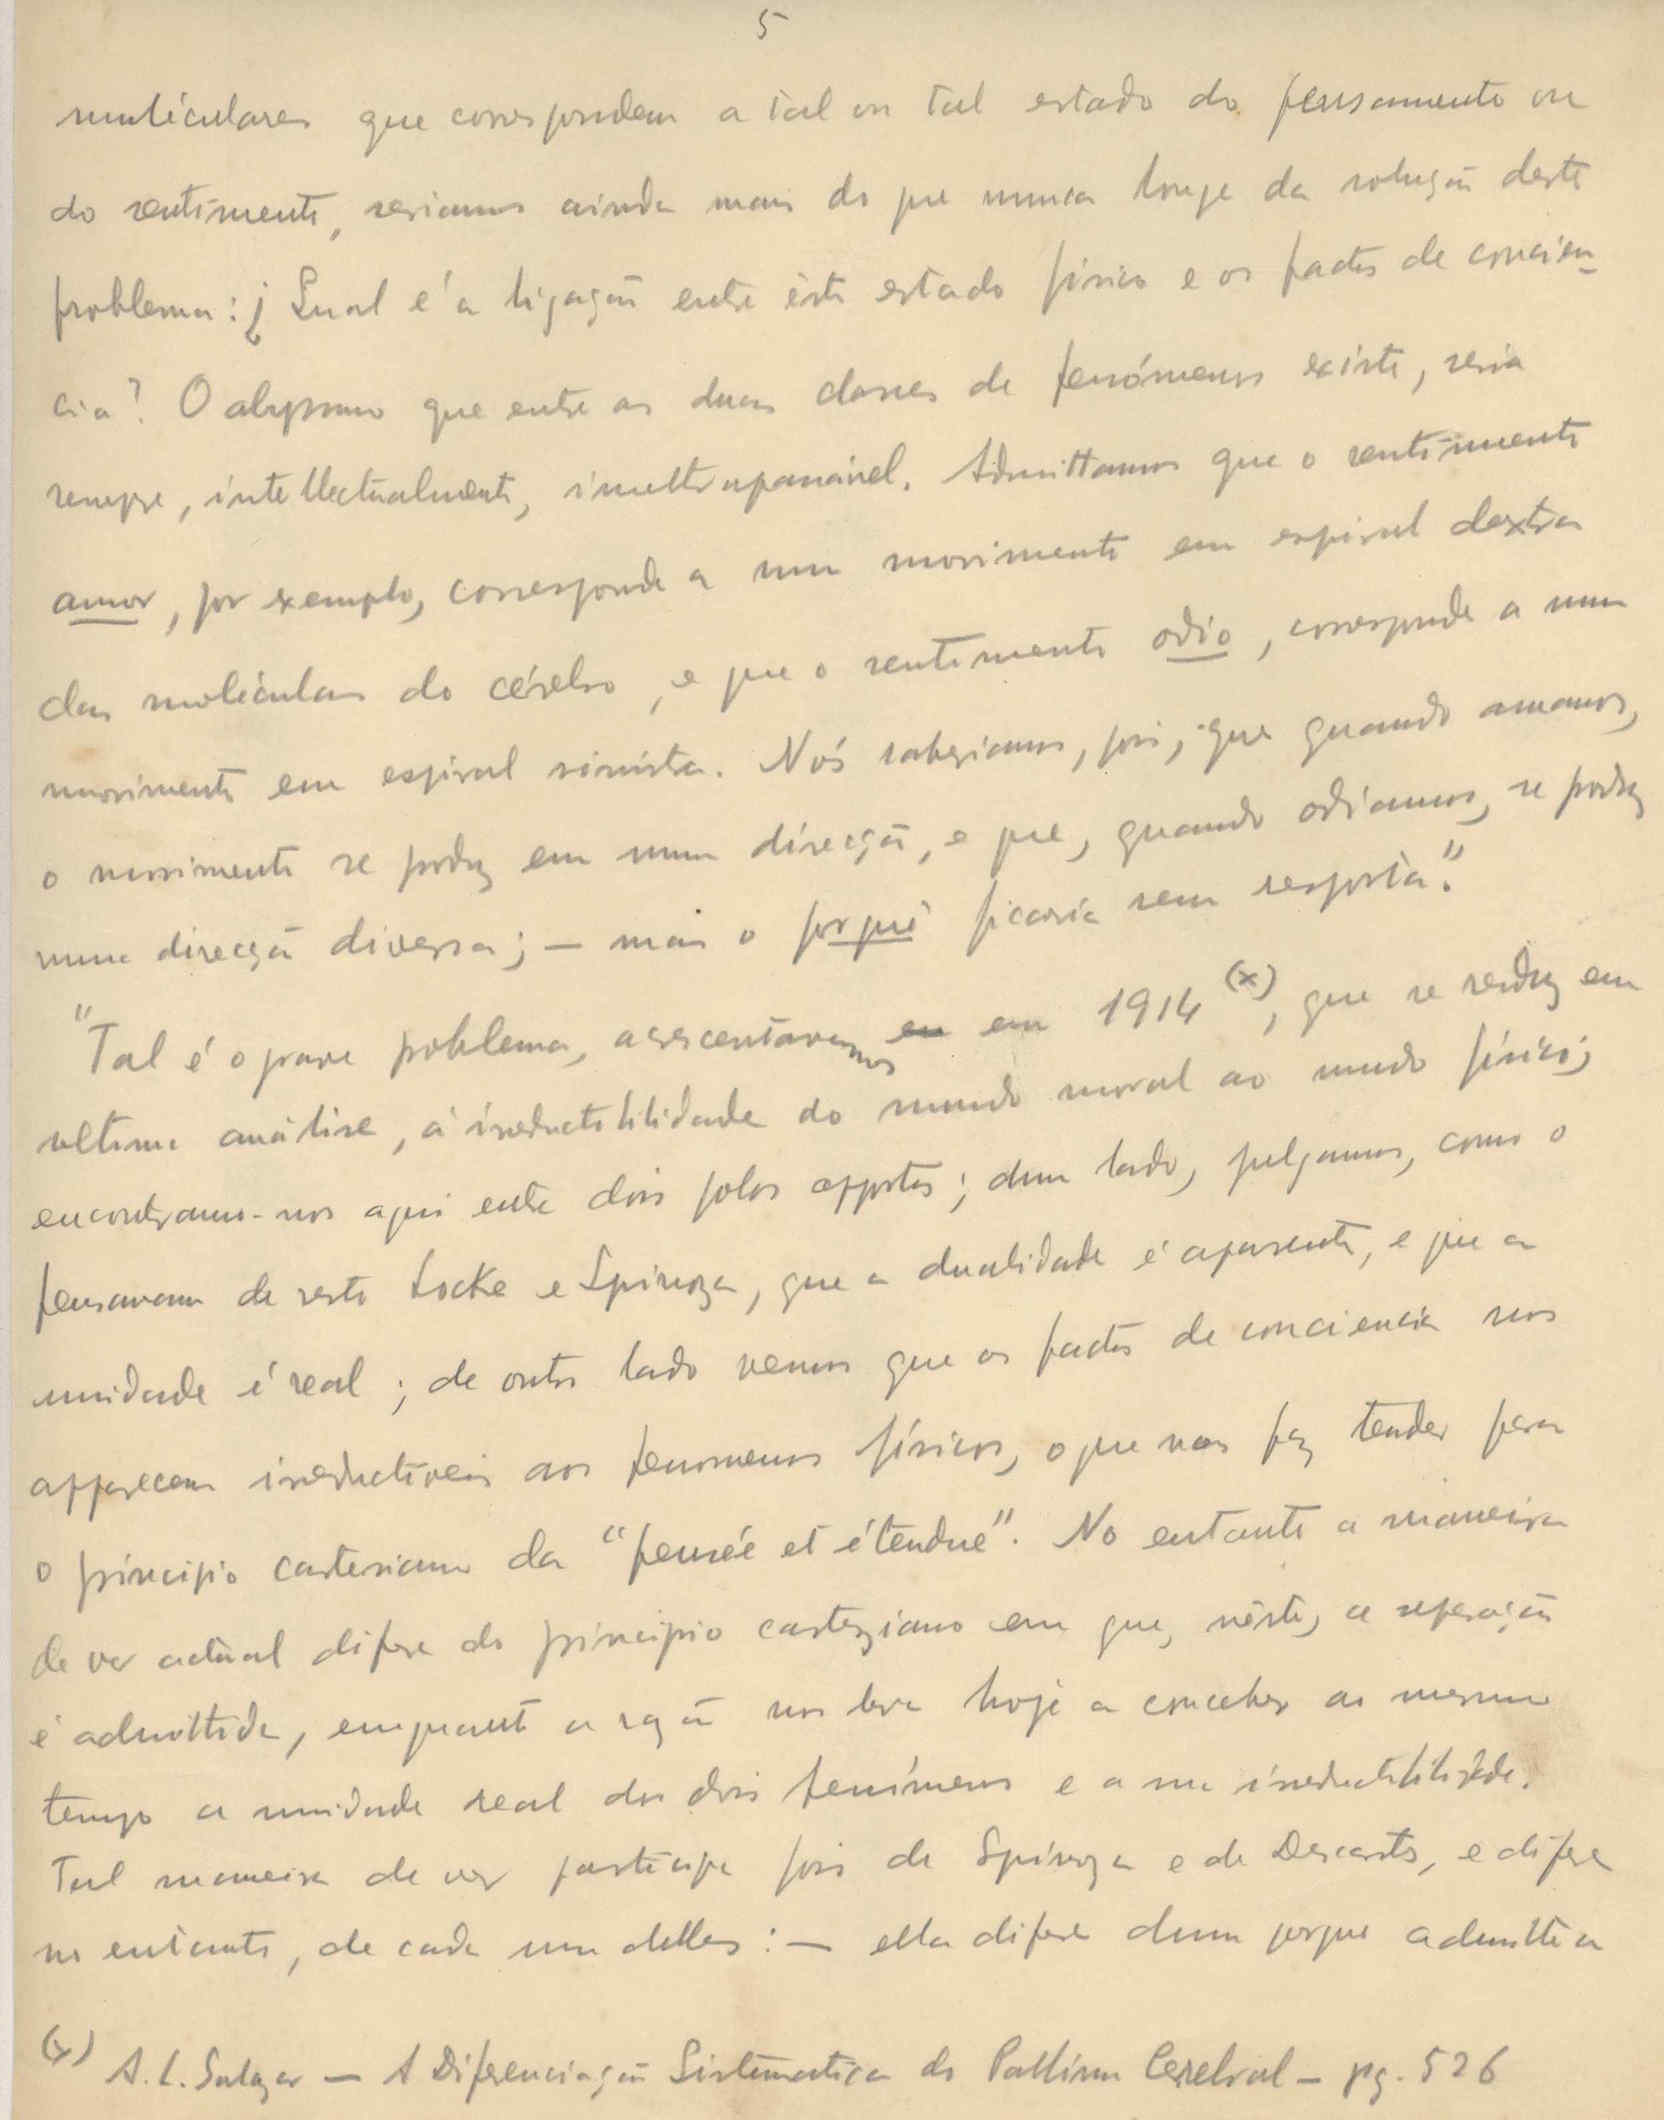 5
moléculares que correspondem a tal ou tal estado do pensamento ou
do sentimento, seriamos ainda mais do que nunca longe da solução deste
problema: ¿ Qual é a ligação entre êste estado físico e os factos de concien-
cia? O abysmo que entre as duas classes de fenómenos existe, seria
sempre, intellectualmente, inultrapassável. Admittamos que o sentimento
amor, por exemplo, corresponde a um movimento em espiral dextra
das moléculas do cérebro, e que o sentimento odio, corresponde a um
movimento em espiral sinistra. Nós saberiamos, pois, que quando amamos,
o movimento se produz em uma direcção, e que, quando odiamos, se produz
numa direcção diversa; — mas o porquê ficaria sem resposta."
"Tal é o grave problema, acrescentavamos em 1914 (x), que se reduz em
ultima análise, á irreductibilidade do mundo moral ao mundo físico;
encontramo-nos aqui entre dois polos oppostos; dum lado, julgamos, como o
pensavam de resto Locke e Spinoza, que a dualidade é aparente, e que a
unidade é real; de outro lado vemos que os factos de conciencia nos
apparecem irreductiveis aos fenomenos físicos, o que nos faz tender para
o principio cartesiano da "pensée et étendue". No entanto a maneira
de ver actual difere do principio carteziano em que, nêste, a separação
é admittida, emquanto a razão nos leva hoje a conceber ao mesmo
tempo a unidade real dos dois fenómenos e a sua irreductibilidade.
Tal maneira de ver participa pois de Spinoza e de Descartes, e difere
no entanto, de cada um delles: — ella difere dum porque admitte a
(x) A. L. Salazar — A Diferenciação Sistematica do Pallium Cerebral — pg. 526